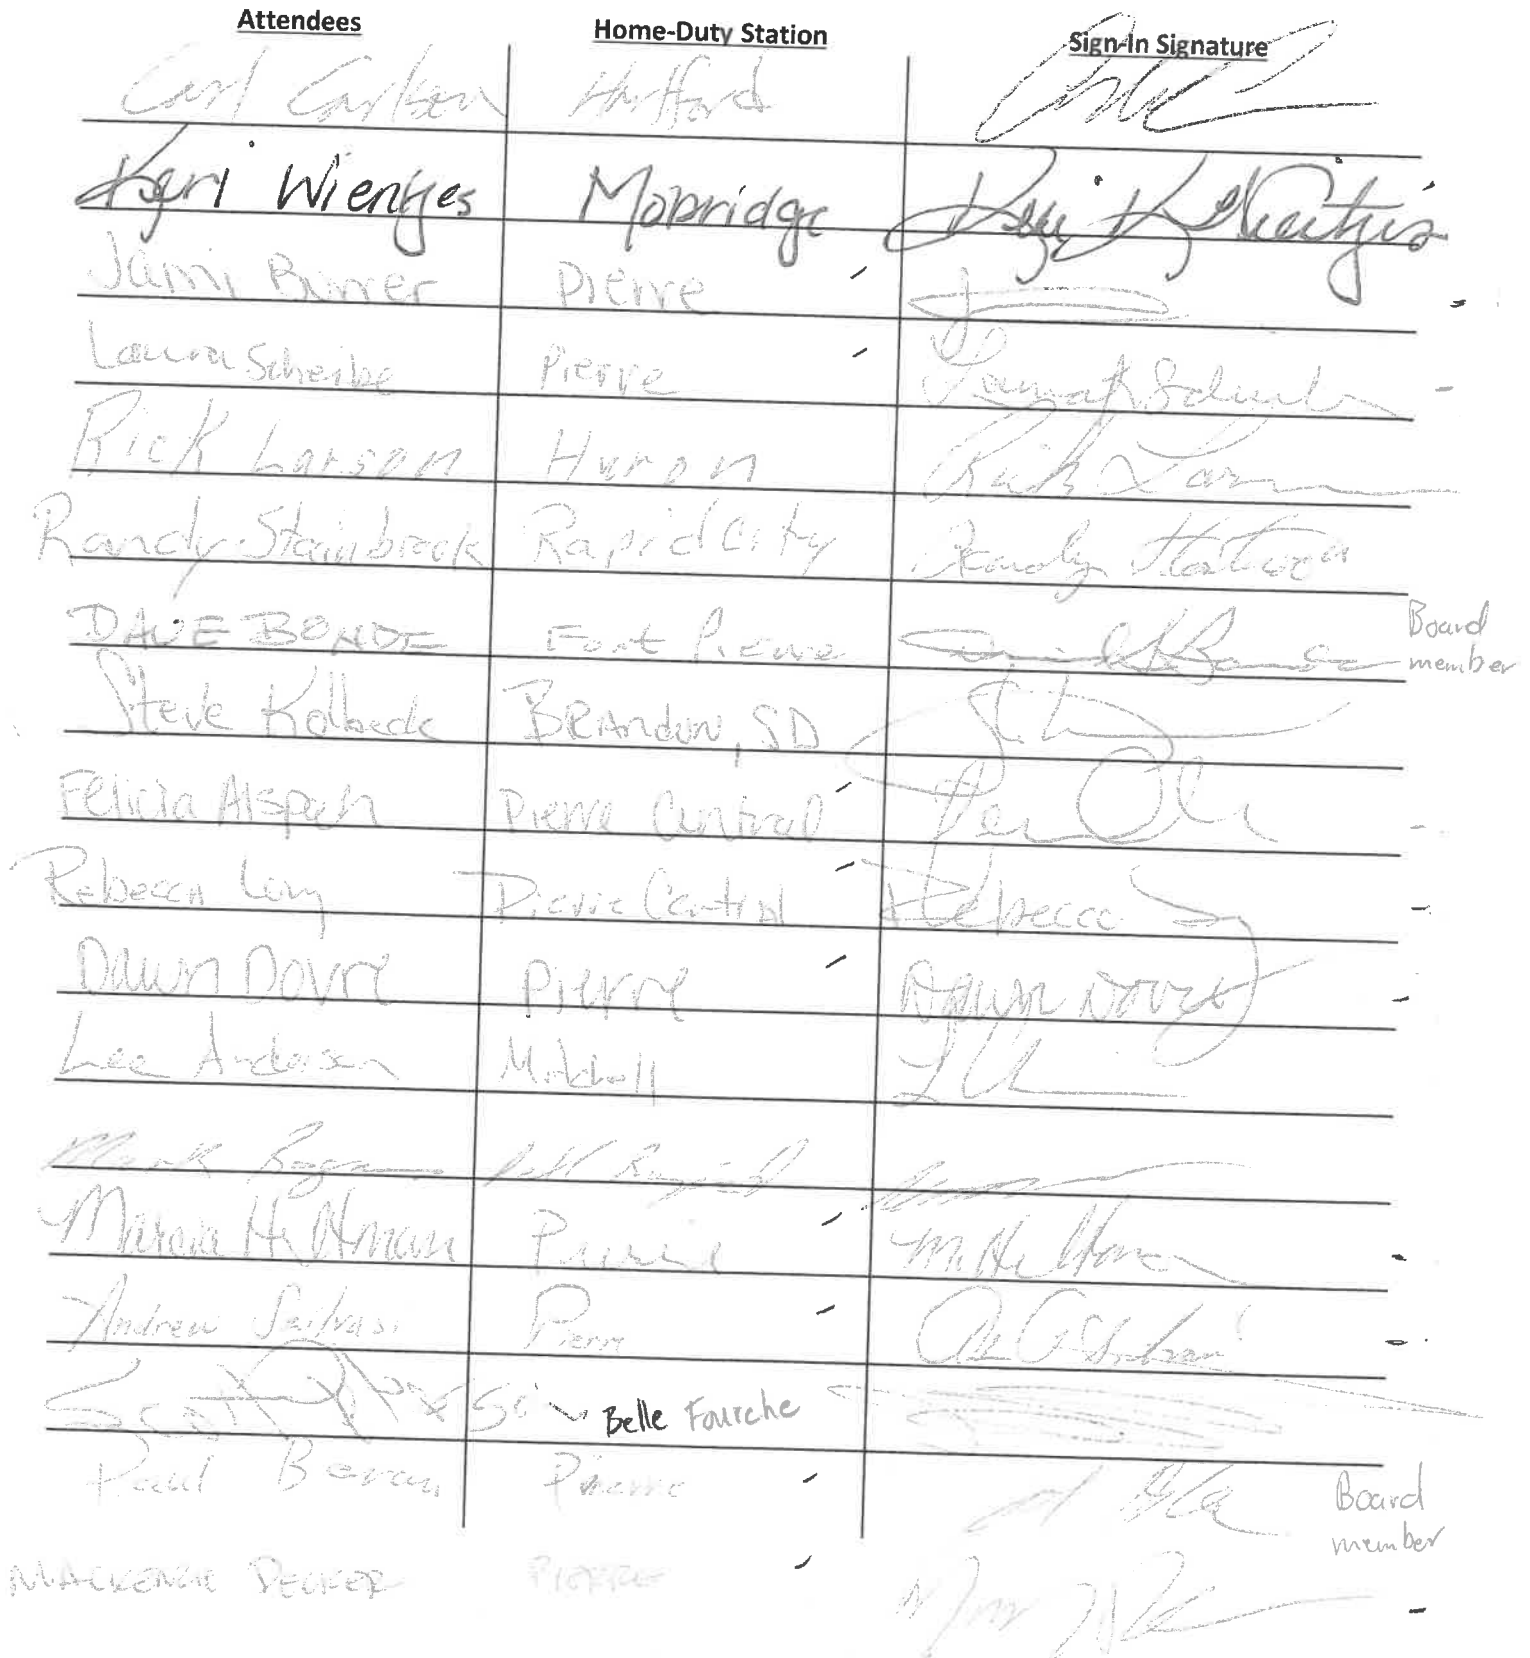 Attendees Home-Duty Station Sign-In Signature
Carl Carlson Hartford
Keri Wientjes Mobridge
Jami Burrer Pierre
Laura Scheibe Pierre
Rick Larson Huron Rick
Randy Stainbrook Rapid City Randy
DAVE BONDE Fort Pierre Board
member
Steve Kolbeck BRANDON, SD
Felicia Alspach Pierre Central
Rebecca Long Pierre Central Rebecca
Dawn Dovre Pierre Dawn Dovre
Lee Anderson Mitchell
Mark
Marcia Hultman Pierre
Andrew Pierre
Scott Belle Fourche
Paul Beran Pierre Board
member
MACKENZIE DECKER PIERRE